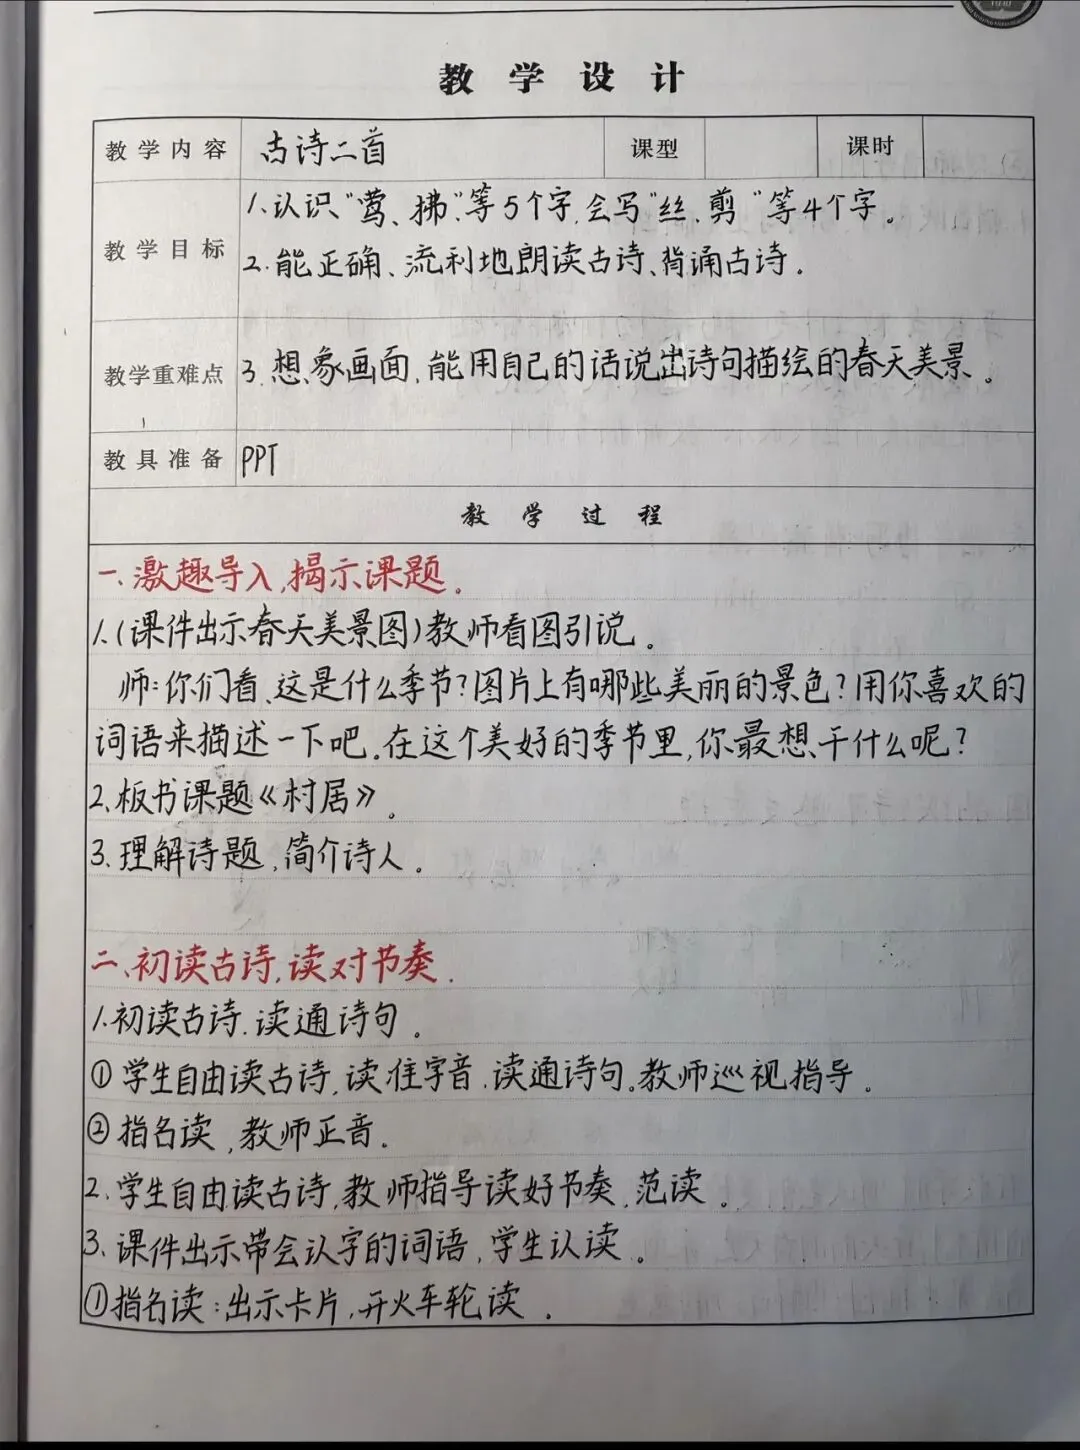 教学设计
教学内容 古诗二首 课型 课时
教学目标 1.认识“莺、拂”等5个字,会写“丝、剪”等4个字。
2.能正确、流利地朗读古诗、背诵古诗.
教学重难点 3.想象画面,能用自己的话说出诗句描绘的春天美景。
教具准备 PPT
教学过程
一、激趣导入,揭示课题。
1.(课件出示春天美景图)教师看图引说。
师:你们看,这是什么季节?图片上有哪些美丽的景色?用你喜欢的
词语来描述一下吧。在这个美好的季节里,你最想干什么呢?
2.板书课题《村居》。
3.理解诗题,简介诗人。
二、初读古诗,读对节奏.
1.初读古诗.读通诗句。
①学生自由读古诗,读准字音.读通诗句。教师巡视指导。
②指名读,教师正音.
2.学生自由读古诗,教师指导读好节奏,范读。
3.课件出示带会认字的词语,学生认读。
①指名读:出示卡片,开火车轮读。